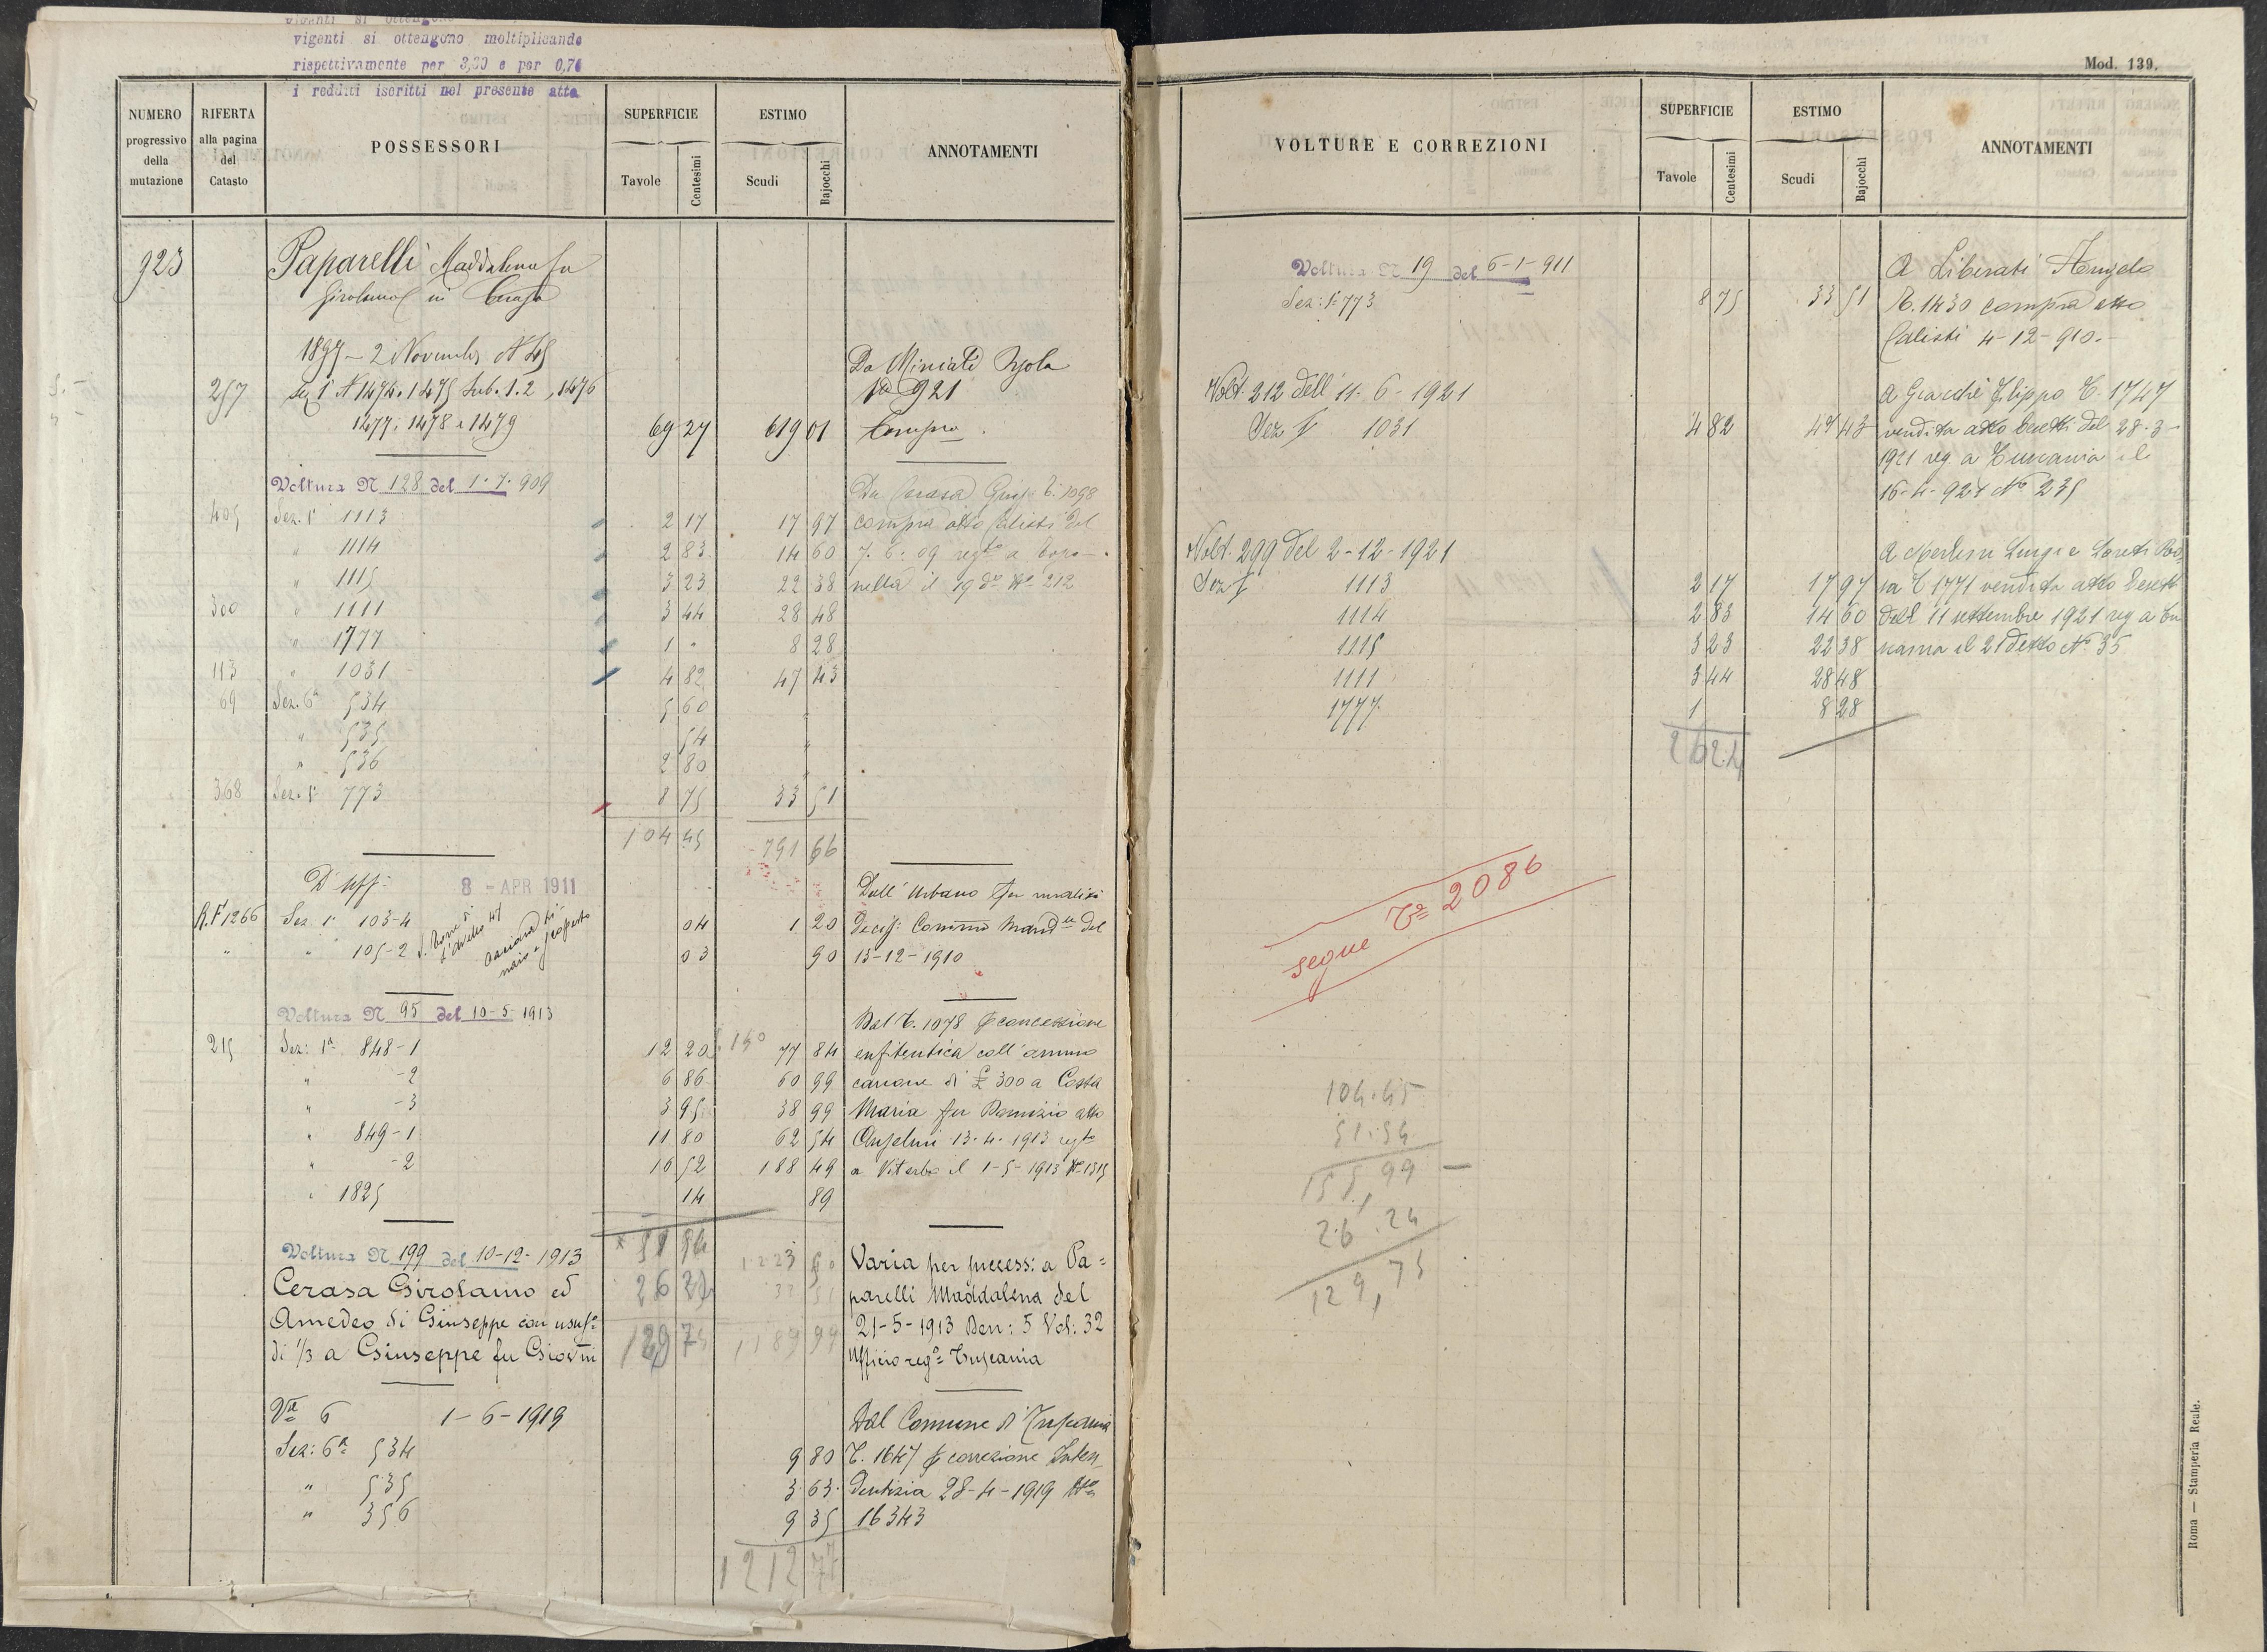 vigenti si ottengono moltiplicando
rispettivamente per 3,60 e per 0,76
i redditi iscritti nel presente atto
NUMERO progressivo della mutazione
RIFERTA alla pagina del Catasto
POSSESSORI
SUPERFICIE
Tavole Centesimi
ESTIMO
Scudi Bajocchi
ANNOTAMENTI
923 Paparelli Maddalena fu
Girolamo in
1897 - 2 Novembre N 45
Da Miniati
257 Sez 1ª N 1474. 1475 Sub. 1. 2, 1476
Tª 921
1477, 1478 e 1479 69 27 619 01 Compra.
Voltura N 128 del 1.7.909
Da Cerasa Gius. T. 1098
405 Sez. 1ª 1113 2 17 17 97 compra atto Calisti del
" 1114 2 83 14 60 7.6.09 regto a Tosca-
" 1115 3 23 22 38 nella il 19 do No 212
300 " 1111 3 44 28 48
" 1777 1 " 8 28
113 " 1031 4 82 47 43
69 Sez. 6ª 534 5 60 "
" 535 54 "
" 536 2 80 "
368 Sez. 1ª 773 8 75 33 51
104 45 791 66
D'uff. 8 - APR 1911
Dall'Urbano per
R.F 1266 Sez 1ª 103-4 04 1 20 Decis: Comm
del
" " 105-2 03 90 13-12-1910
Voltura N 95 del 10-5-1913
Dal T. 1078 p concessione
215 Sez: 1ª 848-1 12 20 77 84 enfiteutica coll'annuo
" -2 6 86 60 99 canone di £ 300 a Costa
" -3 3 95 38 99 Maria fu Domizio atto
" 849-1 11 80 62 54 Anselmi 13-4-1913 regto
" -2 16 52 188 49 a Viterbo il 1-5-1913 No 1315
" 1825 14 89
51 54
Voltura N 199 del 10-12-1913 1223 50 Varia per success: a Pa=
Cerasa Girolamo ed 26 24 33 51 parelli Maddalena del
Amedeo di Giuseppe con usufo 21-5-1913 Den: 5 Vol: 32
di 1/3 a Giuseppe fu Giovni 129 75 1189 99 Ufficio rego Tuscania
Vra 6 1-6-1919 Dal Comune di Tuscania
Sez: 6ª 534 9 80 T. 1647 p correzione Inten
" 535 3 63 dentizia 28-4-1919 No
" 356 9 35 16343
1212 77
Mod. 139.
VOLTURE E CORREZIONI
SUPERFICIE
Tavole Centesimi
ESTIMO
Scudi Bajocchi
ANNOTAMENTI
Voltura N 19 del 6-1-911
A Liberati Angelo
Sez: 1ª 773 8 75 33 51 T. 1430 compra atto
Calisti 4-12-910.-
Volt. 212 dell'11-6-1921
A Giacchè Filippo T. 1747
Sez I 1031 4 82 47 43 vendita atto del 28-3-
1921 reg. a Tuscania il
16-4-921 No 235
Volt. 299 del 2-12-1921
A Luigi e Loreti Ro
Sez I 1113 2 17 17 97 sa T 1771 vendita atto
1114 2 83 14 60 dell'11 settembre 1921 reg a Tu
1115 3 23 22 38 scania il 21 detto No 35
1111 3 44 28 48
1777 1 8 28
26 24
segue Tª 2086
104.45
51.54
155,99
26.24
129,75
Roma — Stamperia Reale.